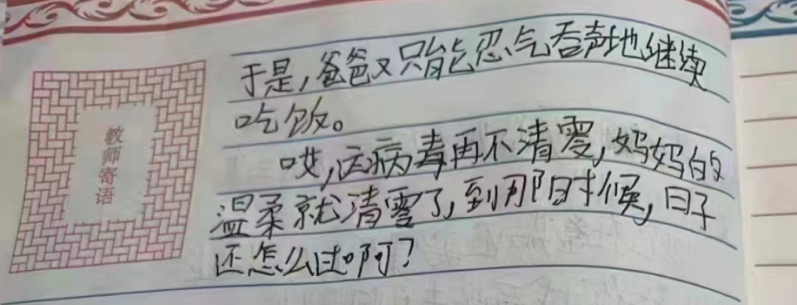 于是,爸爸又只能忍气吞声地继续
吃饭。
教师寄语
哎,这病毒再不清零,妈妈的
温柔就清零了,到那时候,日子
还怎么过啊?